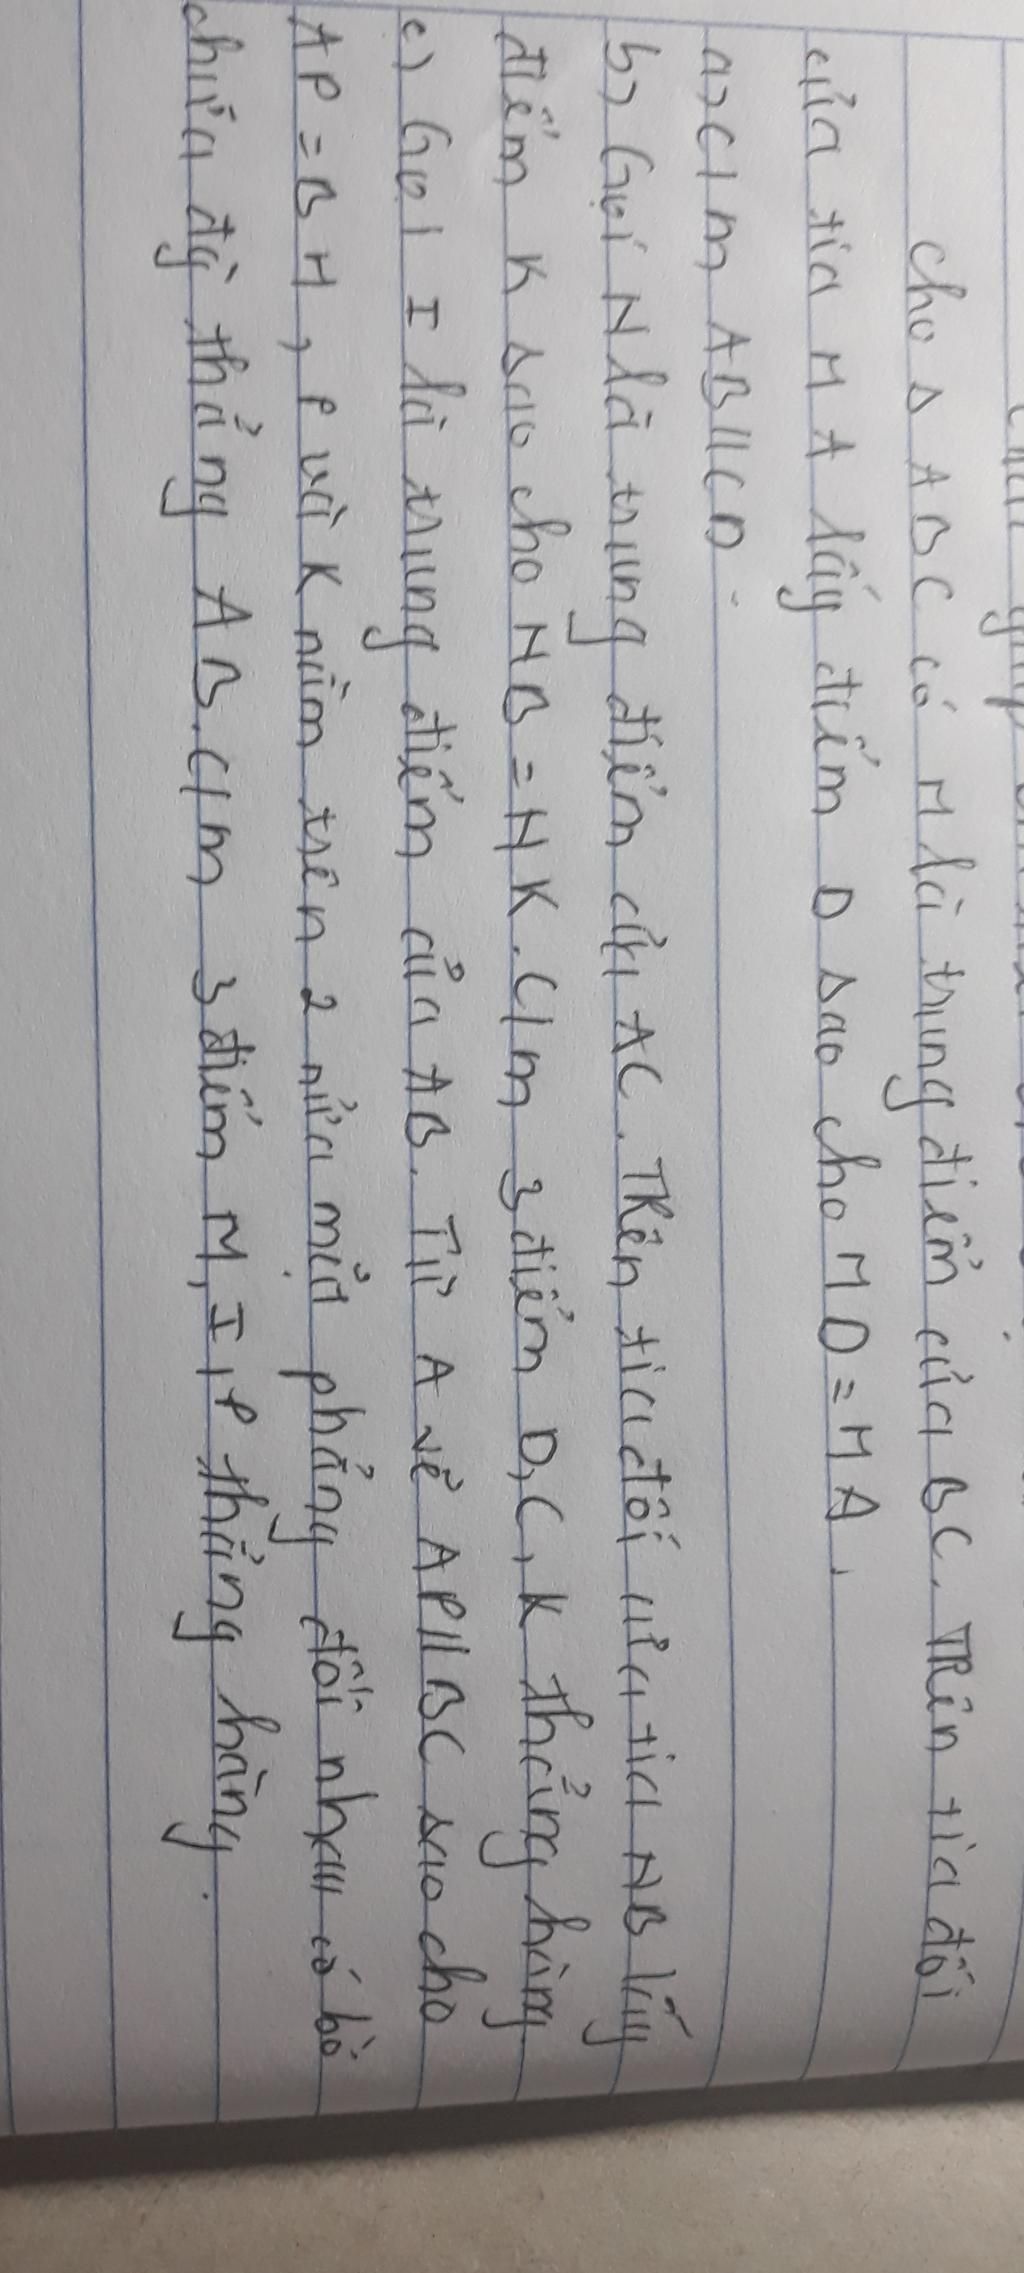 cho Δ ABC có M là trung điểm của BC. Trên tia đối
của tia MA lấy điểm D sao cho MD = MA.
a, C/m AB//CD.
b, Gọi N là trung điểm của AC. Trên tia đối của tia NB lấy
điểm K sao cho NB = NK. C/m 3 điểm D, C, K thẳng hàng
c) Gọi I là trung điểm của AB. Từ A vẽ AP//BC sao cho
AP = BM, P và K nằm trên 2 nửa mửa phẳng đối nhau có bờ
chứa đg thẳng AB. C/m 3 điểm M, I, P thẳng hàng.